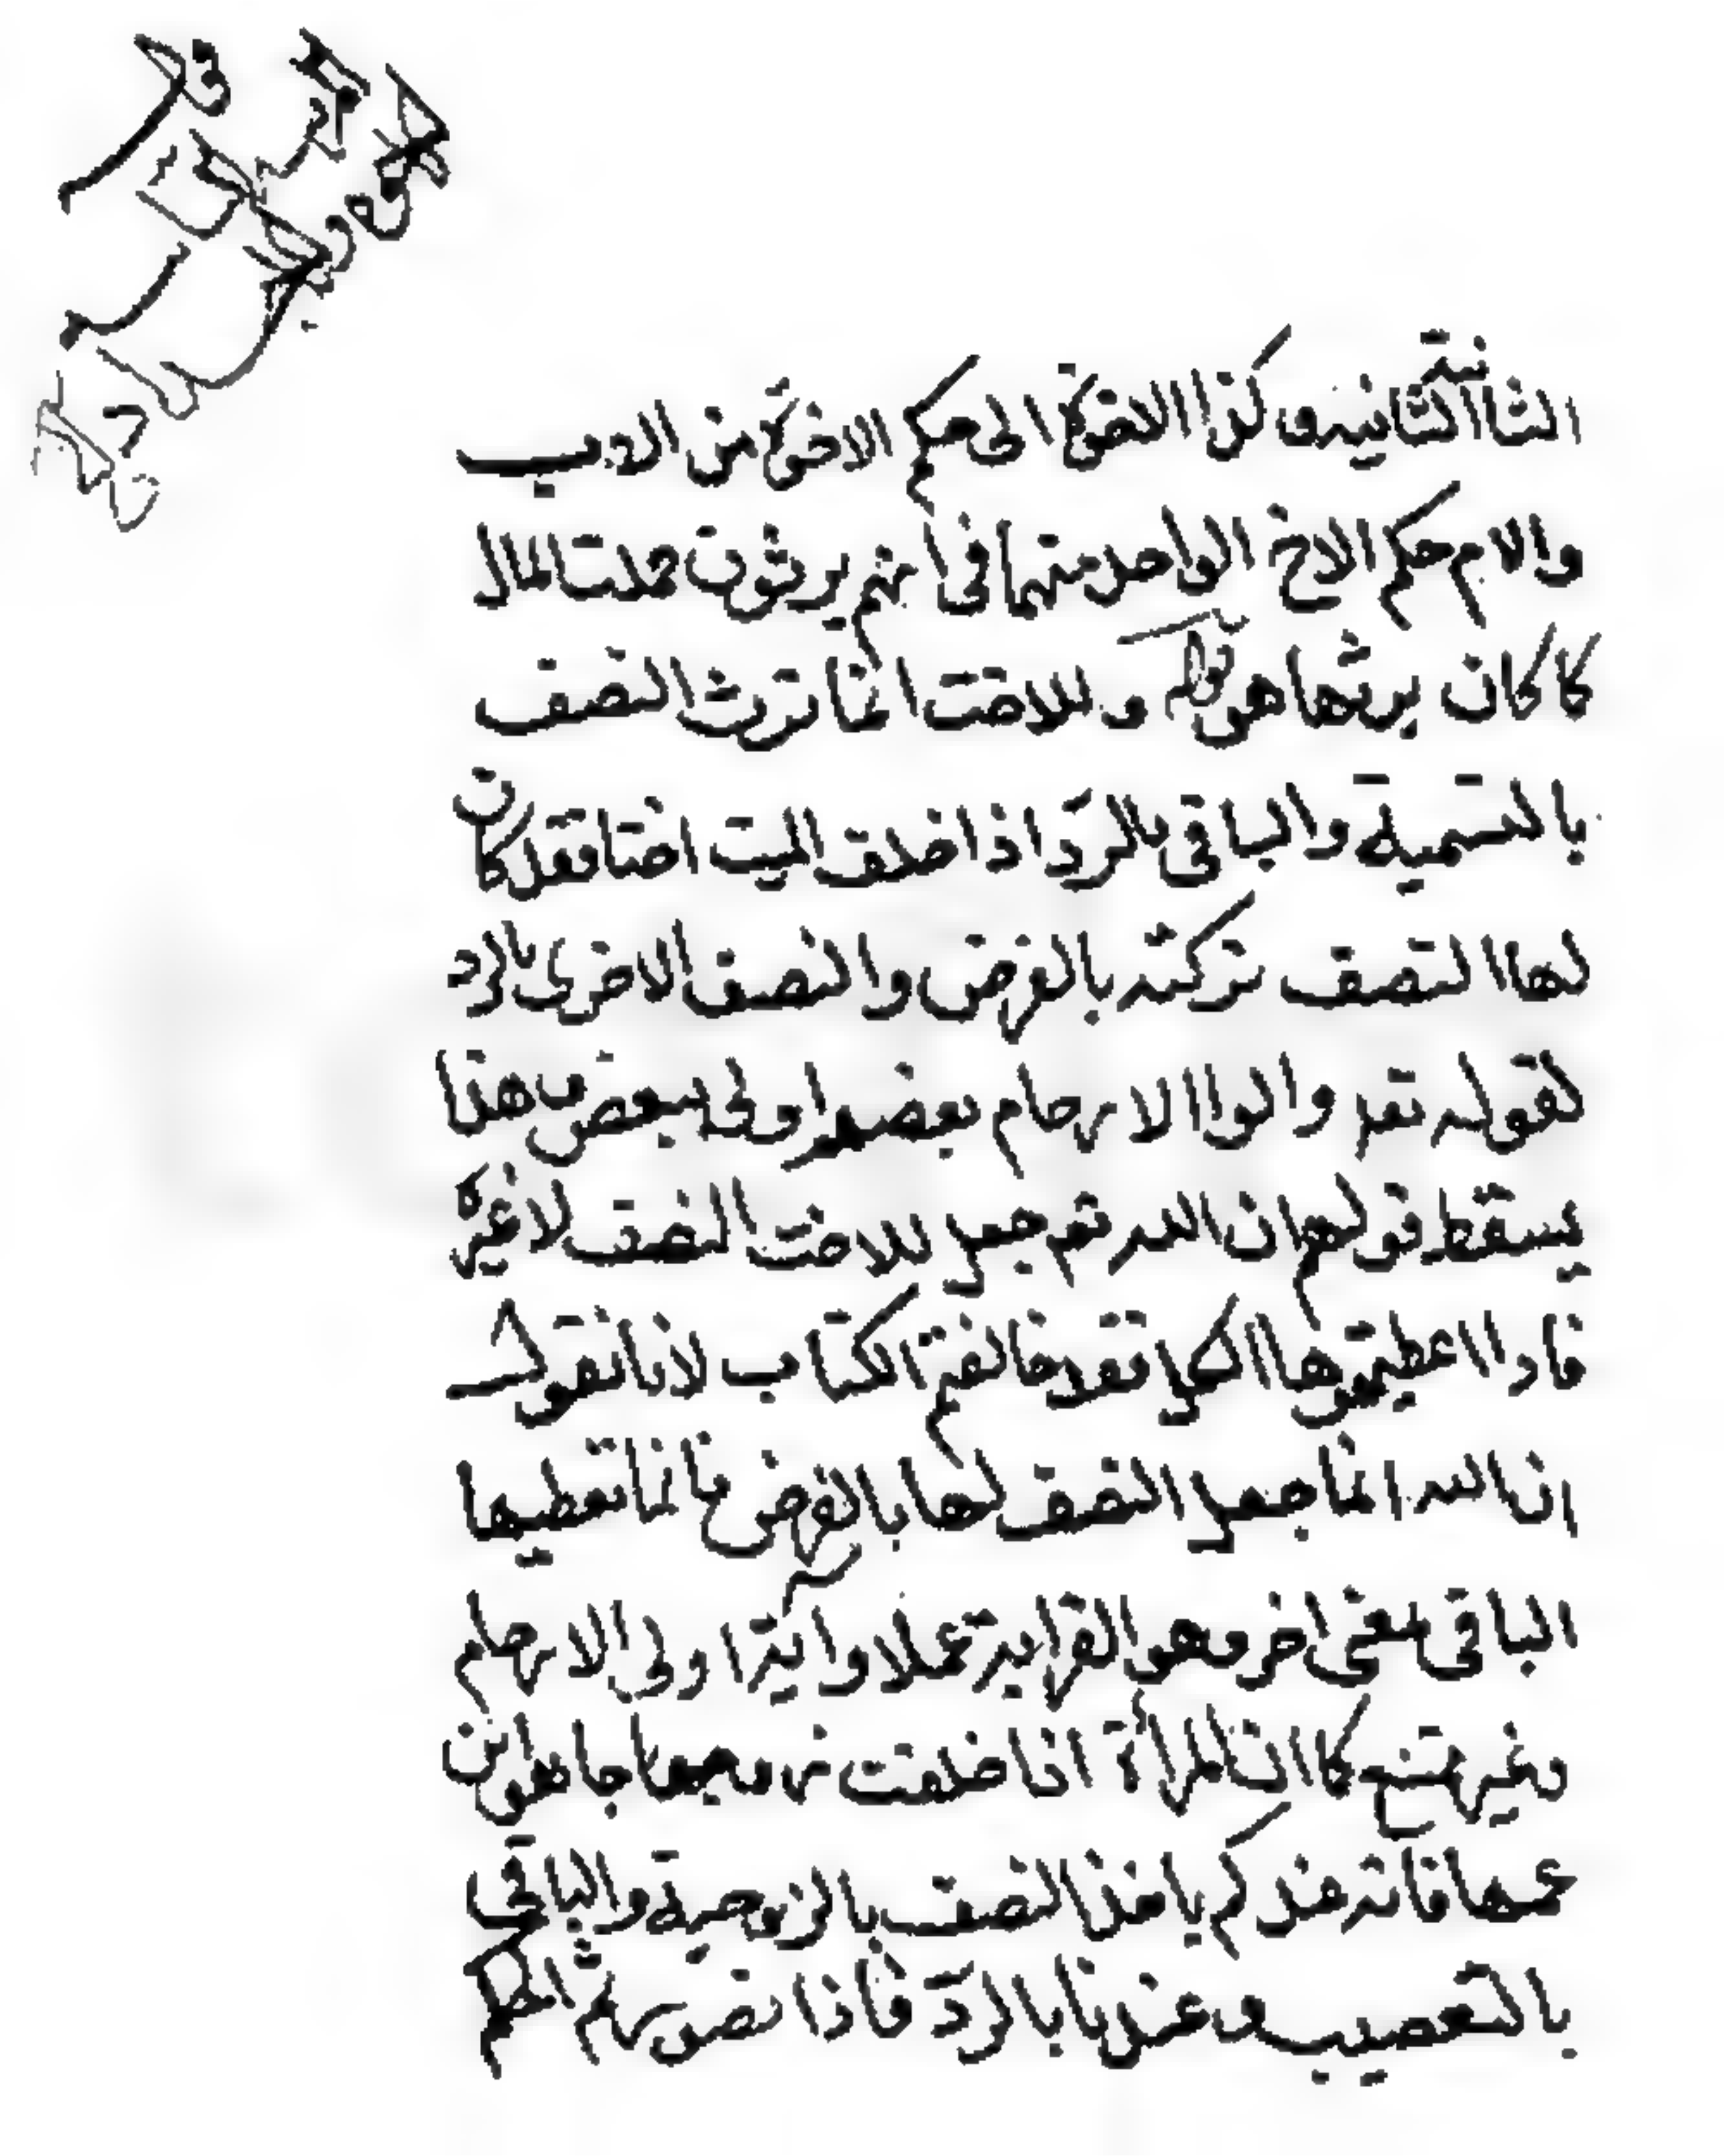 الثانية وكذا الاخوة الى حكم الاخوة من الاب
والام حكم الاخ الواحد منهما فى انهم يرثون جملت المال
كما كان يرثها هو وللاخت انما ترث النصف
بالتسمية والباقى بالرد اذا خلف الميت اختا فقد كان
لها النصف تركته بالفرض والنصف الاخرى بالرد
لقوله تعد والوا الارحام بعضهم اولى ببعض هذا
يسقط قولهم ان الله تعم جعل للاخت النصف لا غير
فاذا اعطيتموها الكل فقد خالفتم الكتاب لانا نقول
ان الله انما جعل النصف لها بالفرض فانما تعطيها
الباقى بمعنى اخر وهو القرابة عملا وآية اولى الارحام
وغير ممتنع كما ان المرأة اذا خلفت زوجها جا هو ابن
عمها فانه عندكم ياخذ النصف بالزوجية والباقى
بالتعصيب وعندنا بالرد فاذا تصورتم الحكم